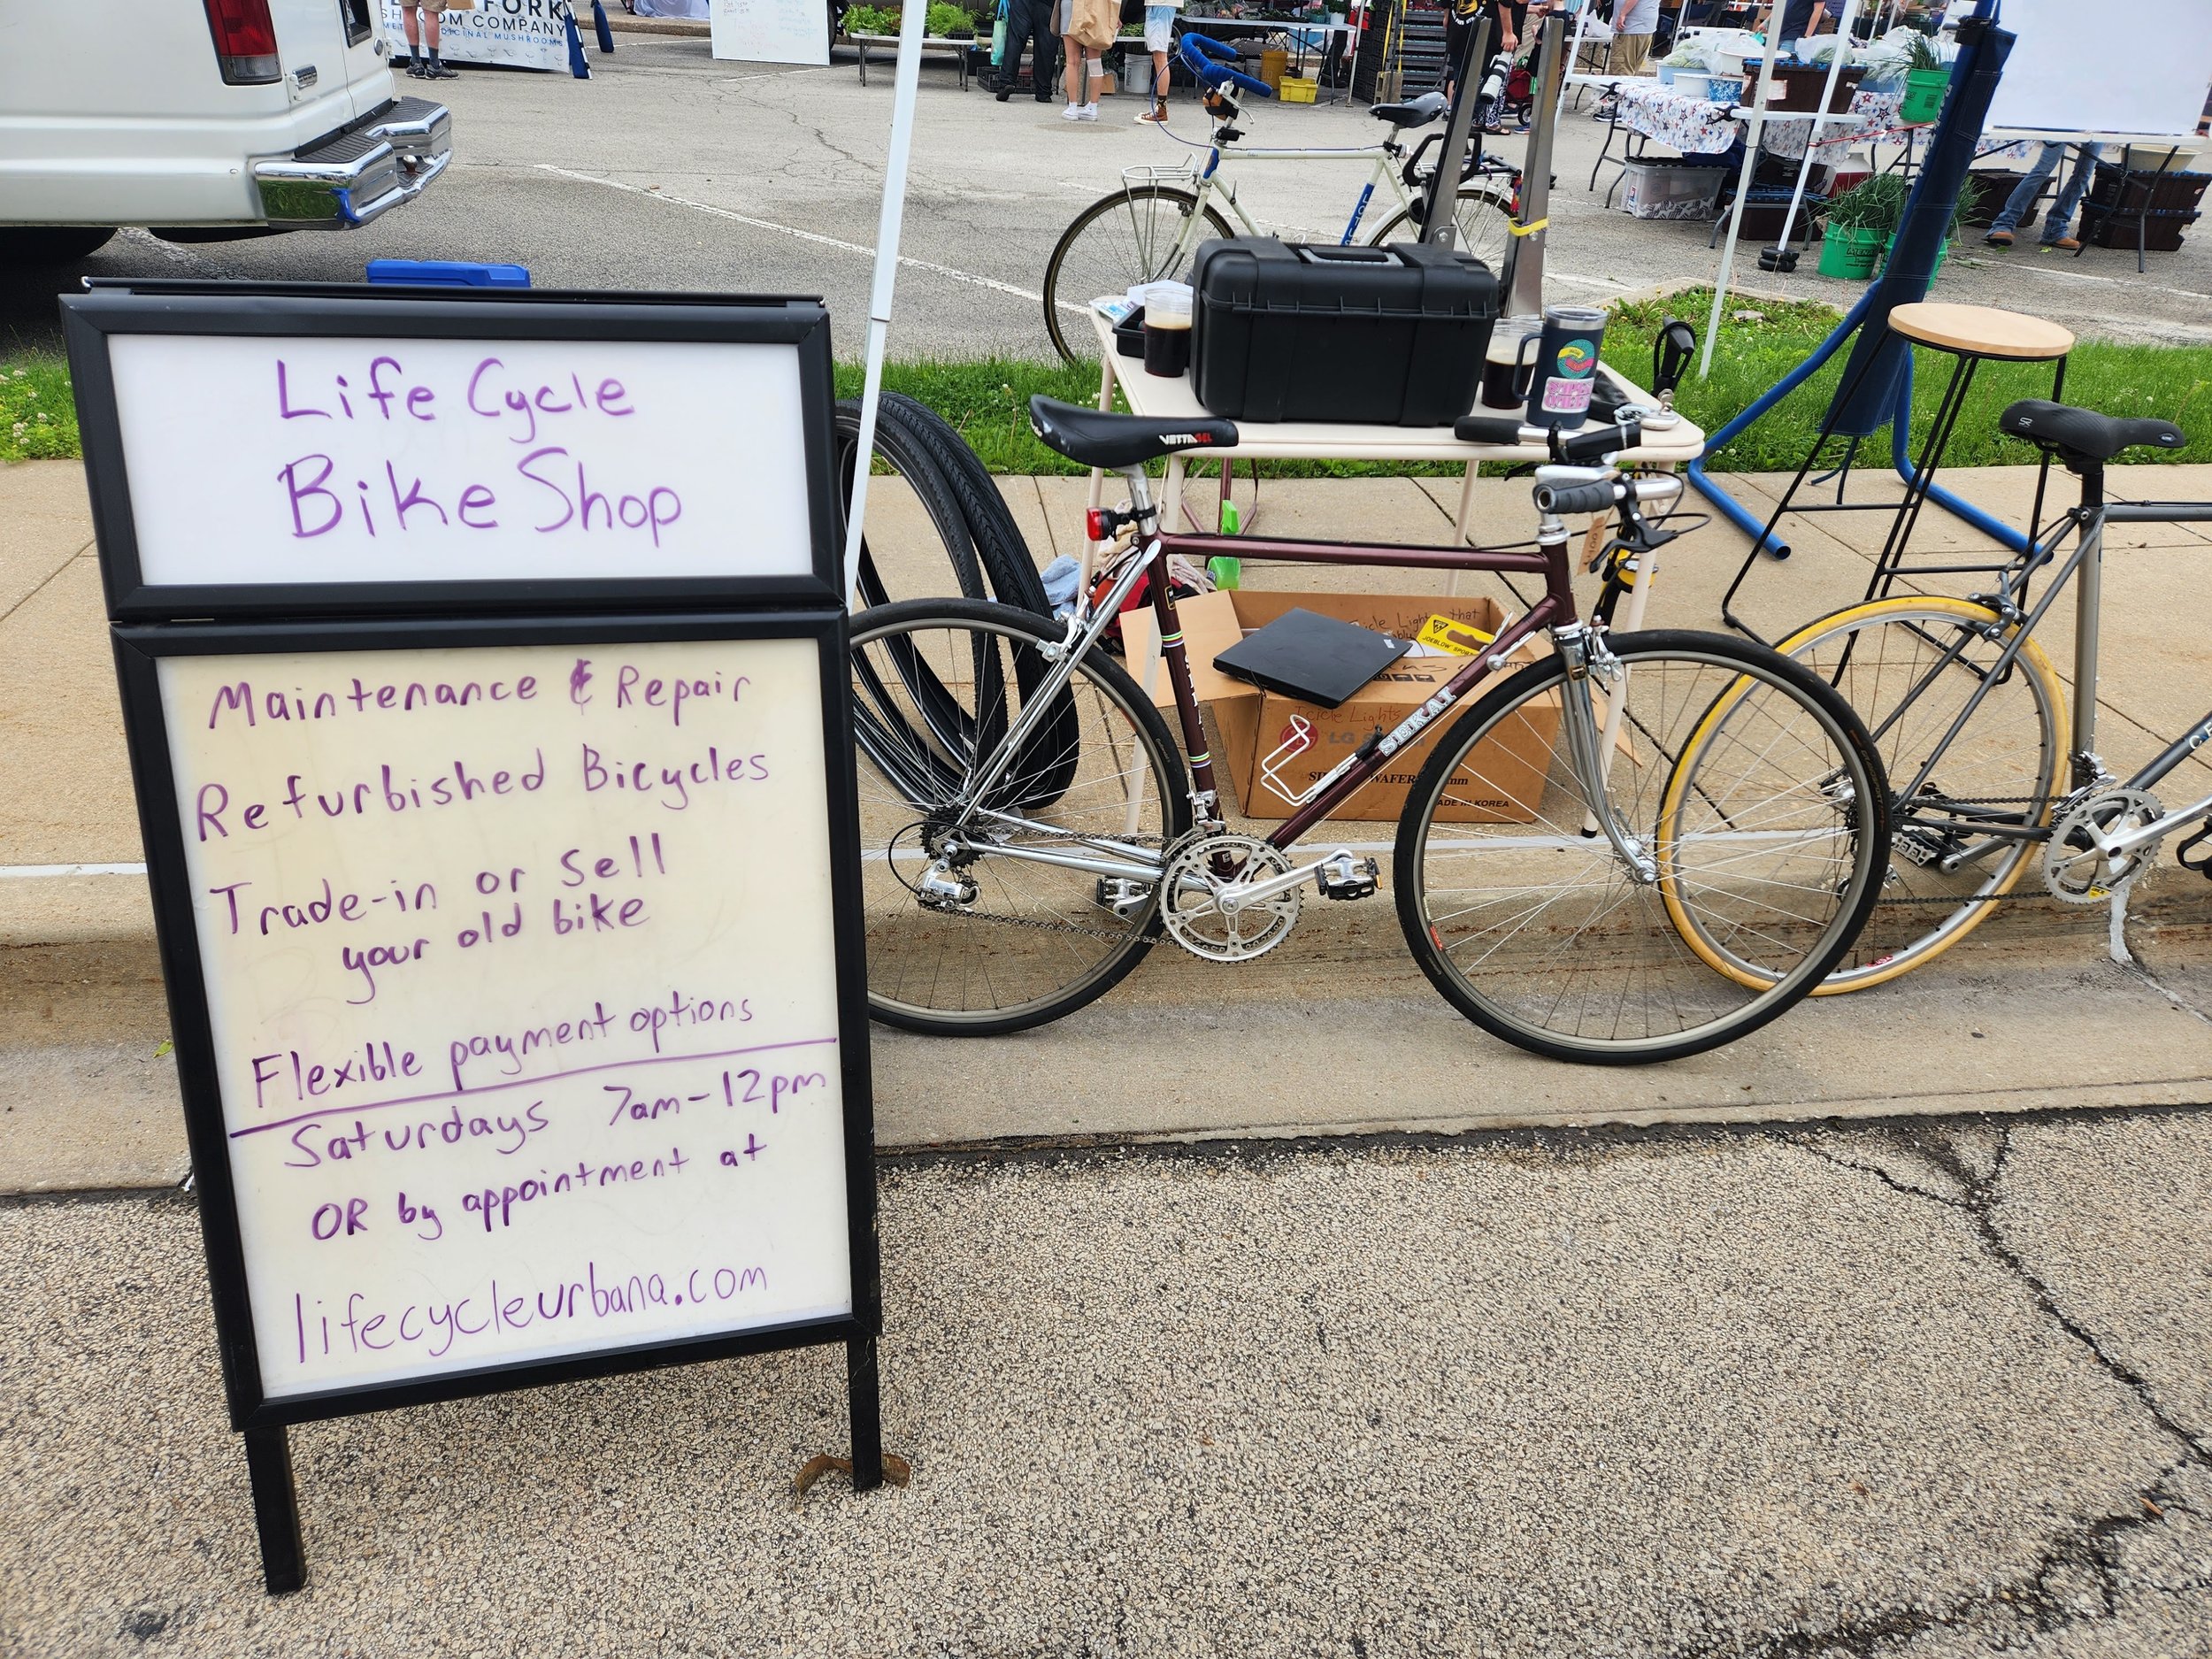 FORK
SHROOM COMPANY
DICINAL MUSHROOMS
Life Cycle
Bike Shop
Maintenance & Repair
Refurbished Bicycles
Trade-in or Sell
your old bike
Flexible payment options
Saturdays 7am-12pm
OR by appointment at
lifecycleurbana.com
VETTA GEL
SEKAI
JOEBLOW SPORT
Icicle Lights that
Icicle Lights
LG
WAFER
mm
MADE IN KOREA